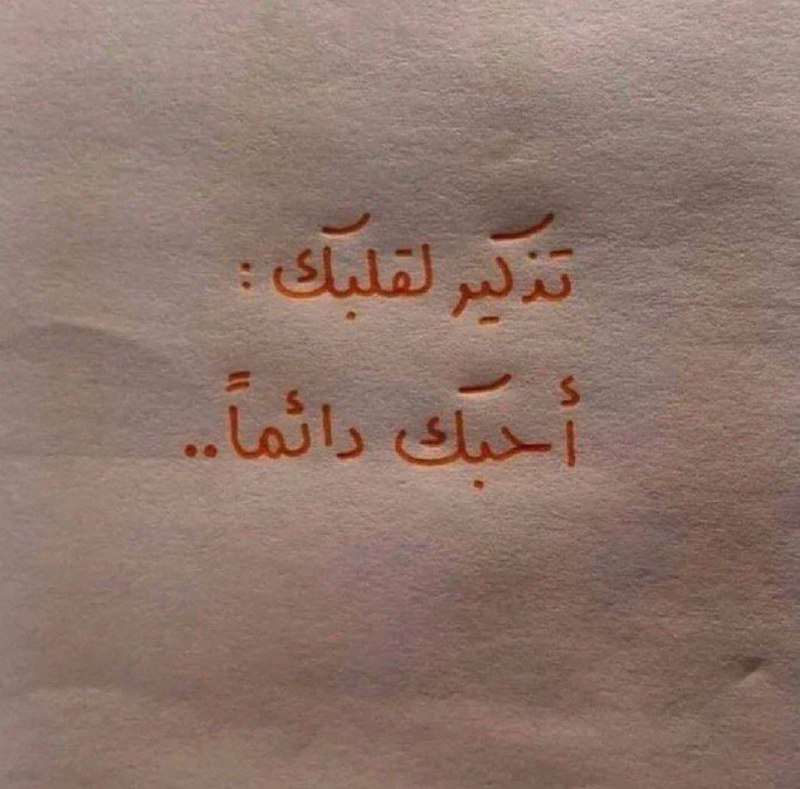 تذكير لقلبك :
أحبك دائماً..